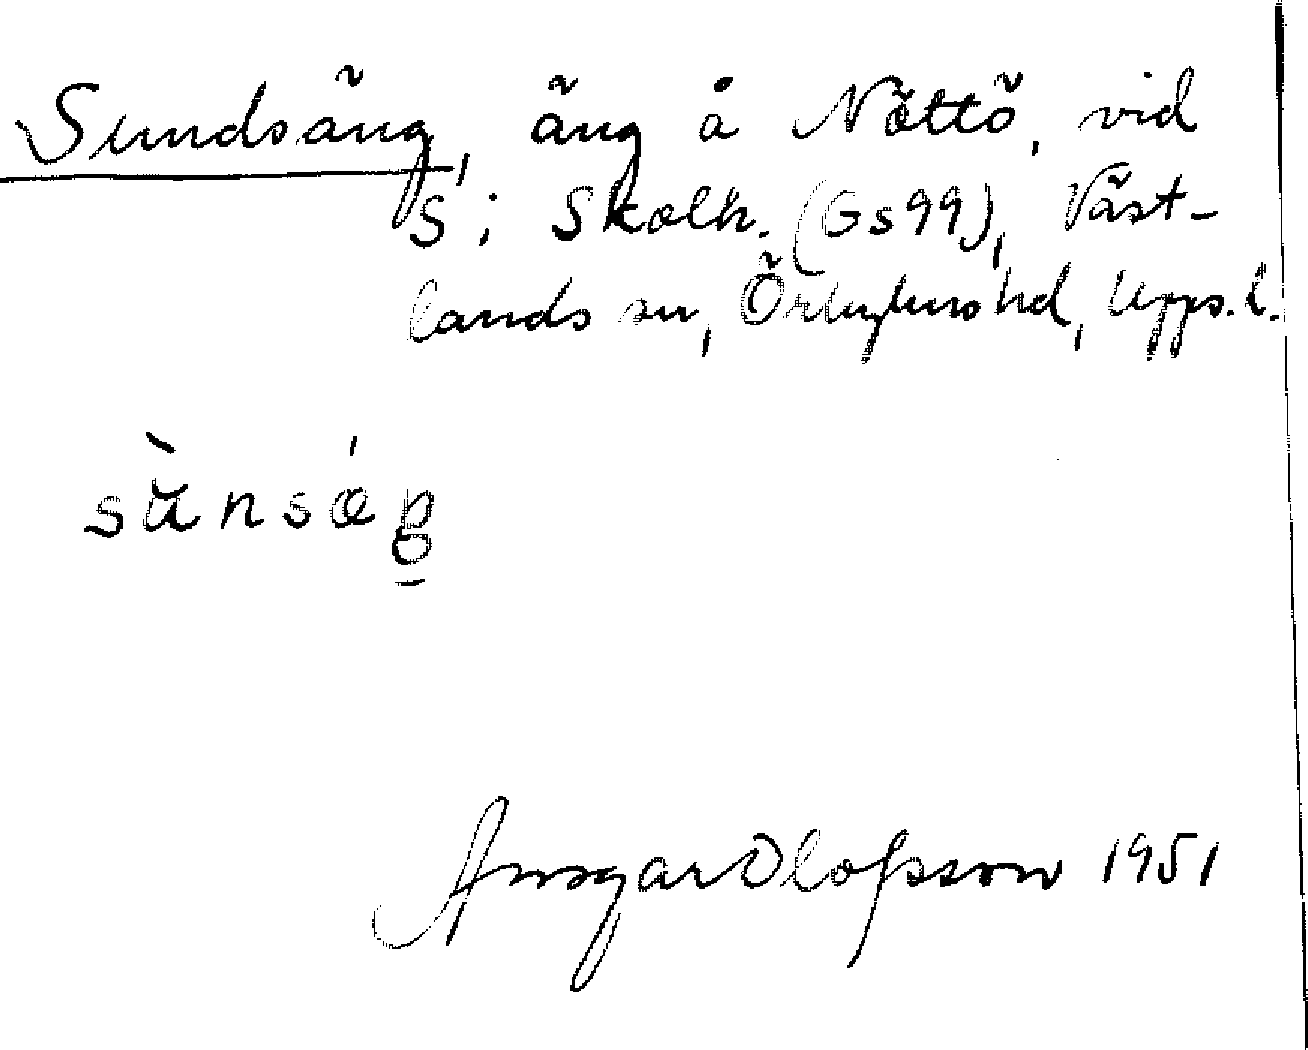 Sundsäng, äng å Nöttö, vid
S; Skolh. (Gs99), Väst-
lands sn, Örbyhus hd, Upps. l.
sùnsǽŋ
Ansgar Olofsson 1951